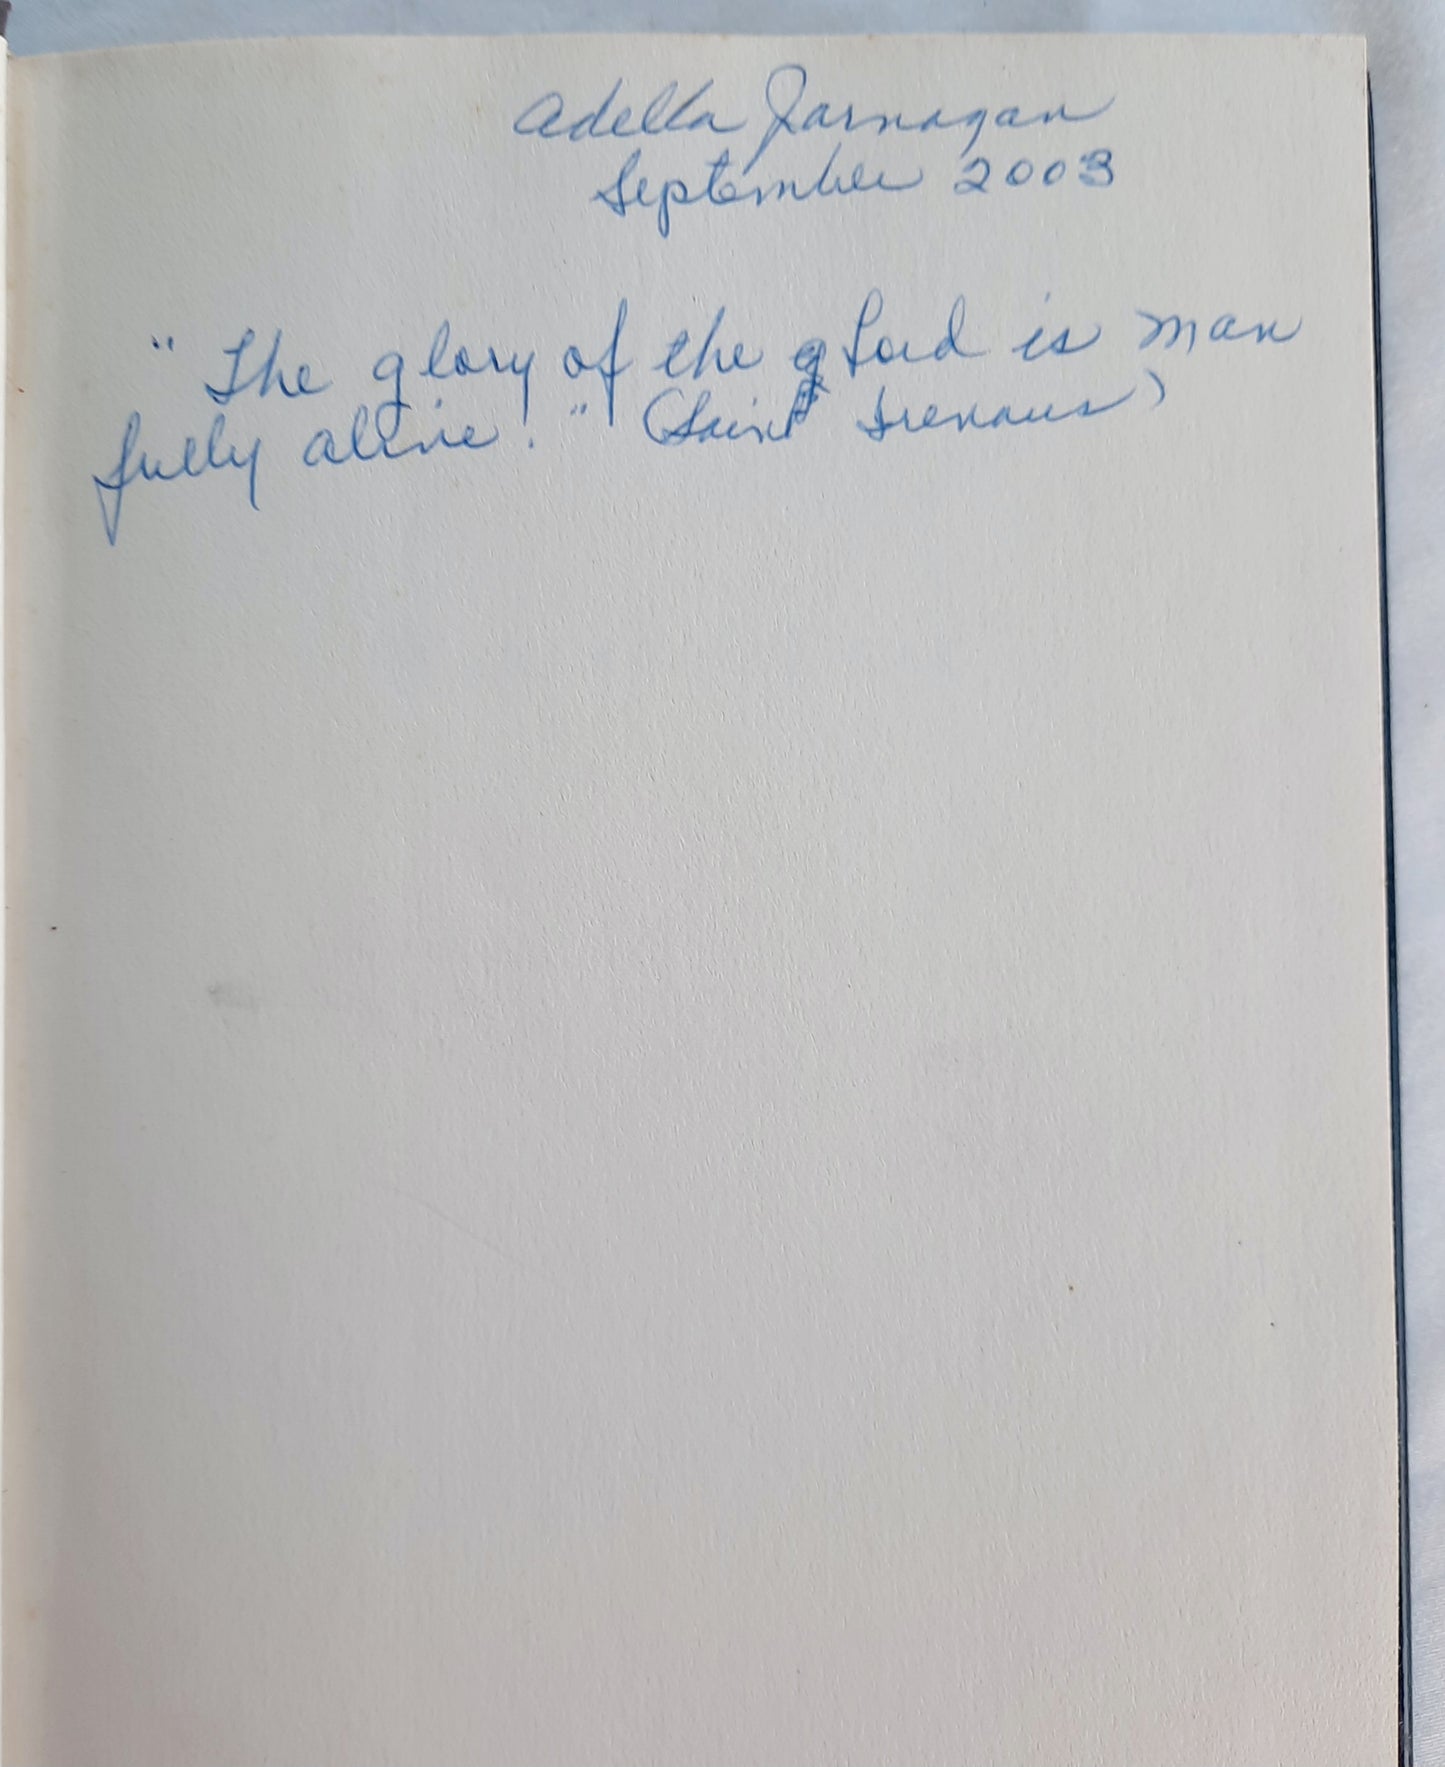 Adella Jarnagan
September 2003
"The glory of the g Lord is man
fully alive!" (Saint Irenaus)